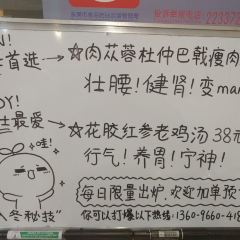 投诉举报电话：22337
N!
首选
☆肉苁蓉杜仲巴戟瘦肉
壮腰！健肾！变man
DY!
士最爱
☆花胶红参老鸡汤38元
行气！养胃！宁神！
哇!
冬秘技"
每日限量出炉,欢迎加单预
你可以打爆以下热线:1360-9660-418